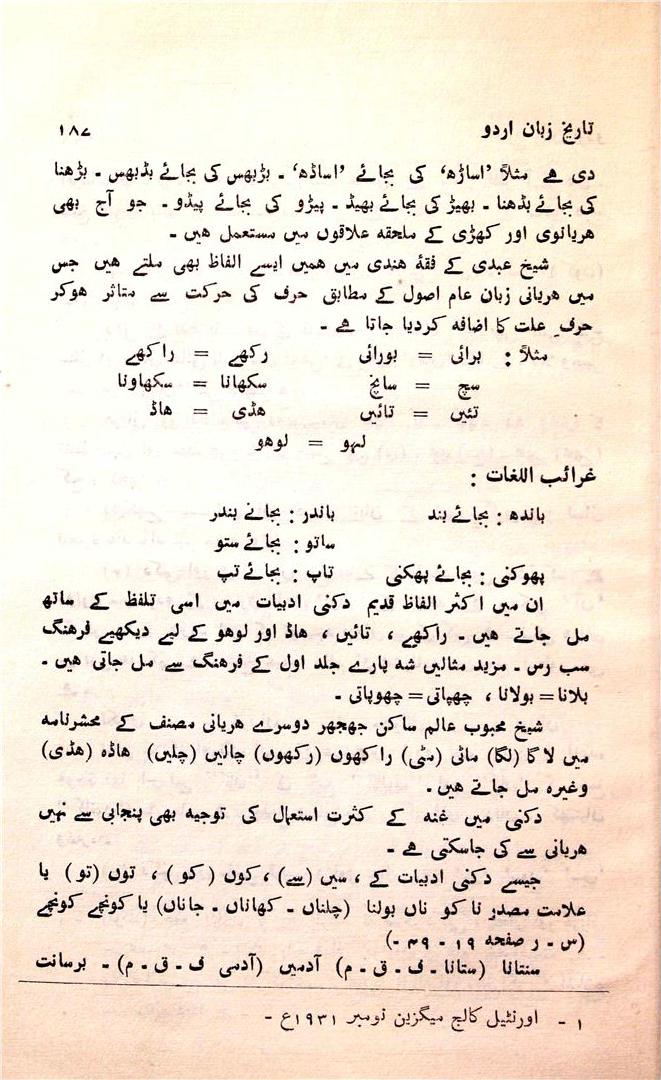 تاریخ زبان اردو ۱۸۷
دی ہے مثلاً ’اساڑھ‘ کی بجائے ’اساڈھ‘ ۔ بڑبھس کی بجائے بڈبھس ۔ بڑھنا
کی بجائے بڈھنا ۔ بھیڑ کی بجائے بھیڈ ۔ پیڑو کی بجائے پیڈو ۔ جو آج بھی
ھریانوی اور کھڑی کے ملحقہ علاقوں میں مستعمل ھیں ۔
شیخ عبدی کے فقۂ ھندی میں ھمیں ایسے الفاظ بھی ملتے ھیں جس
میں ھریانی زبان عام اصول کے مطابق حرف کی حرکت سے متاثر ھوکر
حرف علت کا اضافہ کردیا جاتا ہے ۔
مثلاً : برائی = بورائی رکھے = راکھے
سچ = سانچ سکھانا = سکھاونا
تئیں = تائیں ھڈی = ھاڈ
لہو = لوھو
غرائب اللغات :
باندھ : بجائے بند باندر : بجائے بندر
ساتو : بجائے ستو
پھوکنی : بجائے پھکنی تاپ : بجائے تپ
ان میں اکثر الفاظ قدیم دکنی ادبیات میں اسی تلفظ کے ساتھ
مل جاتے ھیں ۔ راکھے ، تائیں ، ھاڈ اور لوھو کے لیے دیکھیے فرھنگ
سب رس ۔ مزید مثالیں شہ پارے جلد اول کے فرھنگ سے مل جاتی ھیں ۔
بلانا = بولانا ، چھپاتی = چھوپاتی ۔
شیخ محبوب عالم ساکن جھجھر دوسرے ھریانی مصنف کے محشرنامہ
میں لاگا (لگا) ماٹی (مٹی) راکھوں (رکھوں) چالیں (چلیں) ھاڈہ (ھڈی)
وغیرہ مل جاتے ھیں ۔
دکنی میں غنہ کے کثرت استعمال کی توجیہ بھی پنجابی سے نہیں
ھریانی سے کی جاسکتی ہے ۔
جیسے دکنی ادبیات کے ، سیں (سے) ، کوں (کو) ، توں (تو) یا
علامت مصدر نا کو ناں بولنا (چلناں ۔ کھاناں ۔ جاناں) یا کونچے کونچے
(س ۔ ر صفحہ ۱۹ ۔ ۴۹ ۔)
سنتانا (ستانا ۔ ف ۔ ق ۔ م) آدمیں (آدمی ف ۔ ق ۔ م) ۔ برسانت
۱ ۔ اورنٹیل کالج میگزین نومبر ۱۹۳۱ع ۔